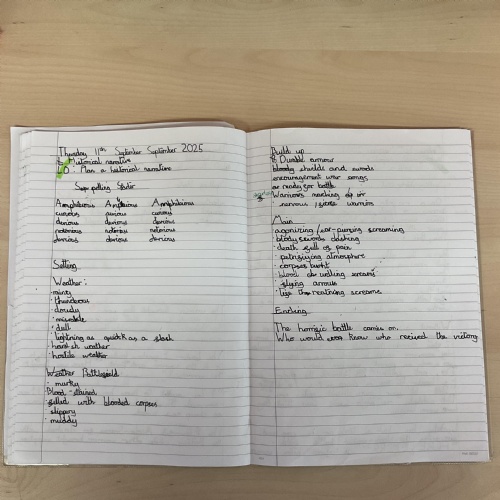 Thursday 11th September September 2025
Historical narrative
LO: Plan a historical narrative
Spelling Starter
Amphibious Amphibious Amphibious
curious curious curious
devious devious devious
notorious notorious notorious
devious devious devious
Setting
Weather:
· misty
· thunderous
· cloudy
· dull
· lightning as quick as a slash
· harsh weather
· hostile weather
Weather Battlefield
· murky
Blood-stained
· filled with blooded corpses
slippery
· muddy
Build up
Durable armour
bloody shields and swords
encouragement war songs
or ready for battle
Warriors marching
nervous warriors
Main
· agonizing/ear-piercing screaming
· bloody swords clashing
· death full of pain
· petrifying atmosphere
· corpses burnt
· blood
· flying arrows
Ending
The horrific battle carries on.
Who would ever know who recived the victory